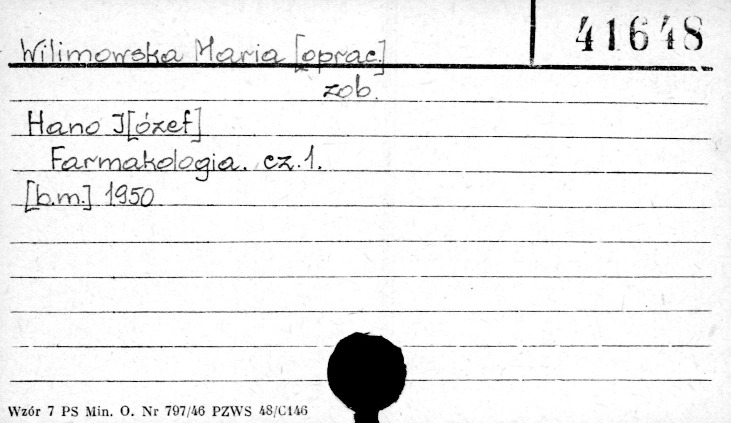 41648
Wilimowska Maria [oprac.]
zob.
Hano J[ózef]
Farmakologia. cz.1.
[b.m.] 1950
Wzór 7 PS Min. O. Nr 797/46 PZWS 48/C146